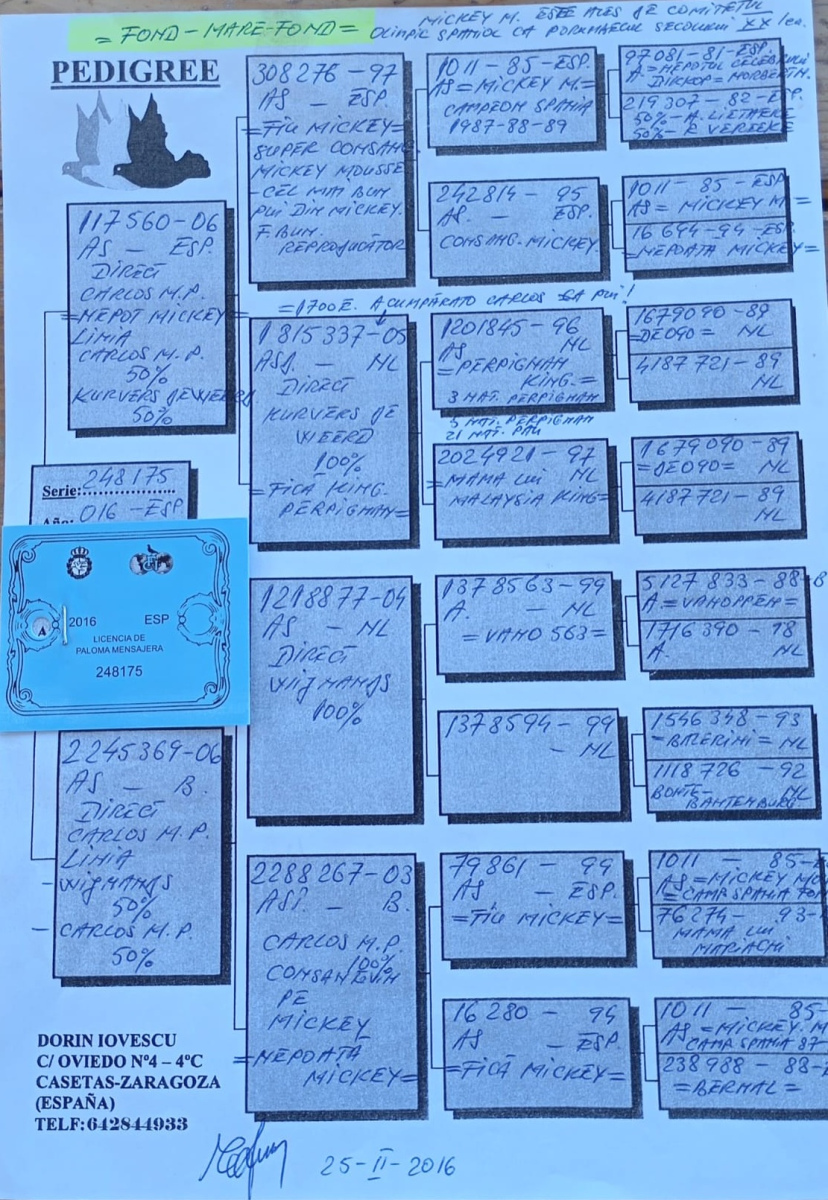 = FOND - MARE-FOND =
MICKEY M. ESTE ALES DE COMITETUL
OLIMPIC SPANIOL CA PORUMBELUL SECOLULUI XX lea.
PEDIGREE
117560-06
AS — ESP.
DIRECT
CARLOS M.P.
=NEPOT MICKEY=
LINIA
CARLOS M.P.
50%
KURVERS DE WEERD
50%
Serie: 248175
Año: 016 - ESP
2016 ESP
A
LICENCIA DE
PALOMA MENSAJERA
248175
2245369-06
AS — B.
DIRECT
CARLOS M.P.
LINIA
- WIJNANDS
50%
- CARLOS M.P.
50%
308276-97
AS — ESP.
=FIU MICKEY=
SUPER CONSANG.
MICKEY MOUSSE
- CEL MAI BUN
PUI DIN MICKEY.
F. BUN
REPRODUCĂTOR
=1700E. A CUMPĂRATO CARLOS CA PUI!
1815337-05
— NL
DIRECT
KURVERS DE
WEERD
100%
=FICA KING.
PERPIGNAN=
1218877-04
AS — NL
DIRECT
WIJNANDS
100%
2288267-03
— B.
CARLOS M.P.
100%
CONSANGVIN
PE
MICKEY
=NEPOATĂ
MICKEY=
1011-85-ESP.
AS=MICKEY M.=
CAMPEON SPANIA
1987-88-89
242814-95
AS. - ESP.
CONSANG. MICKEY
1201845-96
AS NL
=PERPIGNAN
KING.=
3 NAT. PERPIGNAN
5 NAT. PERPIGNAN
21 NAT. PAU
2024921-97
=MAMA LUI NL
MALAYSIA KING=
1378563-99
A. — NL
=VANO 563=
1378594-99
- NL
79861-99
AS — ESP.
=FIU MICKEY=
16280-94
AS — ESP.
=FICĂ MICKEY=
97081-81-ESP.
A=NEPOTUL CELEBRULUI
219307-82-ESP.
50%-A. LIETAERE
50%-R. VEREEKE
1011-85-ESP
AS=MICKEY M.=
16694-94-ESP.
=NEPOATA MICKEY=
1679090-89
=DE090= NL
4187721-89
NL
1679090-89
=DE090= NL
4187721-89
NL
5127833-88-B
A.=VANOPPEN=
1716390-98
A. NL
1546348-93
NL
1118726-92
BONTE- NL
BANTENBURG
1011 - 85-
AS=MICKEY
=CAMP SPANIA
76274- 93-
MAMA LUI
MARIACHI
1011 - 85-
AS=MICKEY.
CAMP SPANIA 87-
238988-88-
=BERNAL=
DORIN IOVESCU
C/ OVIEDO Nº4 – 4ºC
CASETAS-ZARAGOZA
(ESPAÑA)
TELF: 642844933
25-II-2016